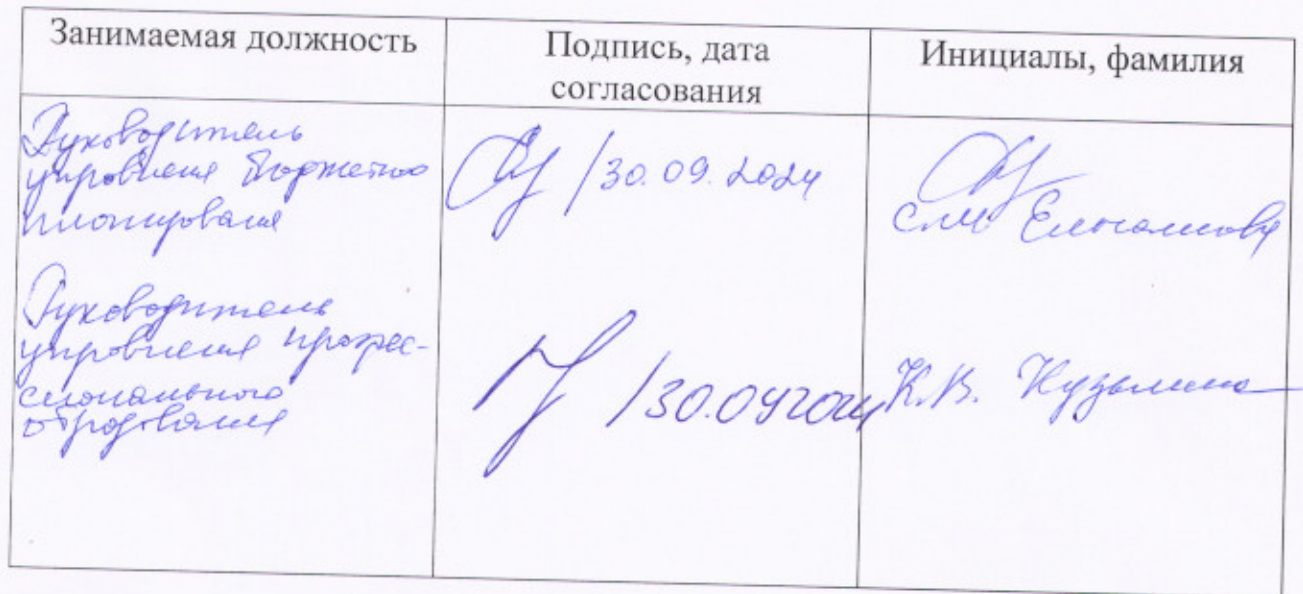 Занимаемая должность
Подпись, дата
согласования
Инициалы, фамилия
Руководитель
управления бюджетного
планирования
/30.09.2024
С.М.
Руководитель
управления профес-
сионального
образования
/30.09.2024
К.В. Кузьмина